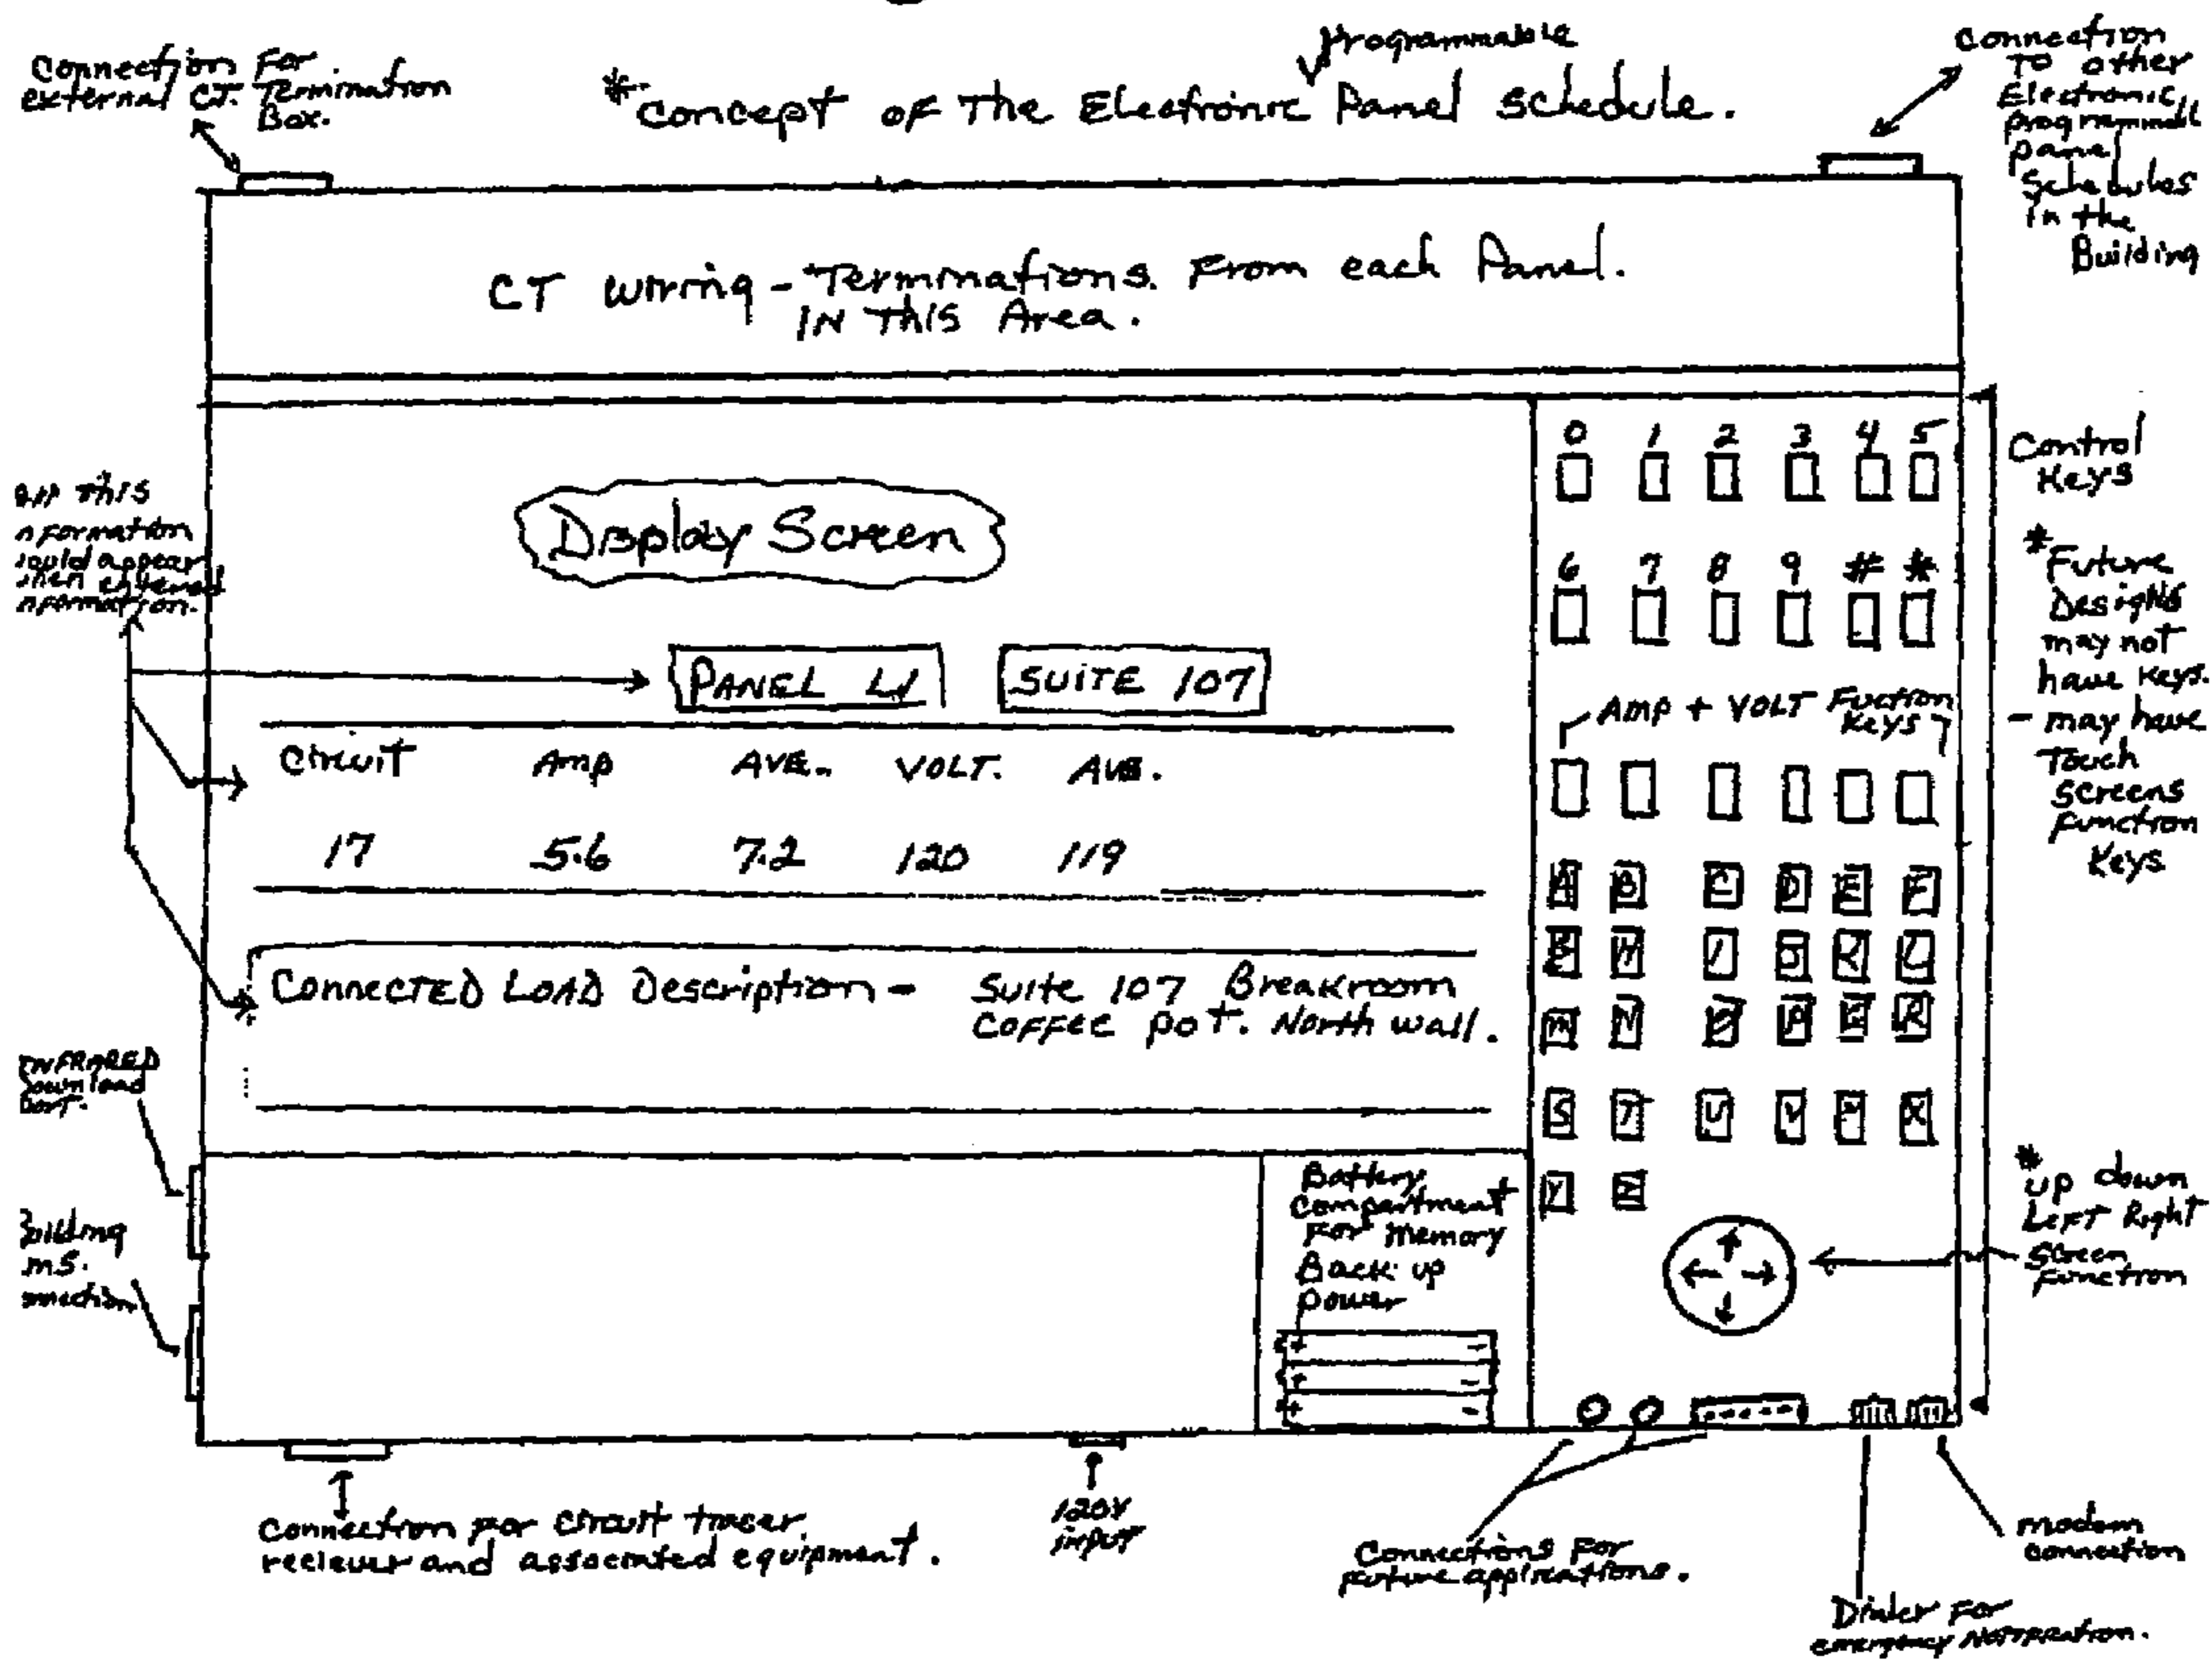 Connection For
external CT. Termination
Box.
Programmable
*Concept of The Electronic Panel Schedule.
Connection
To other
Electronic
programmabl
panel
Schedules
in the
Building
CT wiring - Terminations. From each Panel.
IN This Area.
All This
nformation
would appear
when entered
nformation.
Display Screen
PANEL L1
SUITE 107
Circuit Amp AVE. VOLT. AVE.
17 5.6 7.2 120 119
CONNECTED LOAD Description - Suite 107 Breakroom
Coffee pot. North wall.
INFRARED
Download
Port.
Building
ms.
nnection
Battery
Compartment
For Memory
Back up
Power
+ -
+ -
+ -
0 1 2 3 4 5
6 7 8 9 # *
Amp + VOLT Fuction
Keys
A B C D E F
G H I J K L
M N O P R
S T U V X
Y Z
Control
Keys
*Future
Designs
may not
have Keys.
- may have
Touch
Screens
function
Keys
*
up down
Left Right
Screen
function
Connection for circuit tracer,
reciever and associated equipment.
120V
input
Connections For
future applications.
modem
connection
Dialer For
emergency Notification.